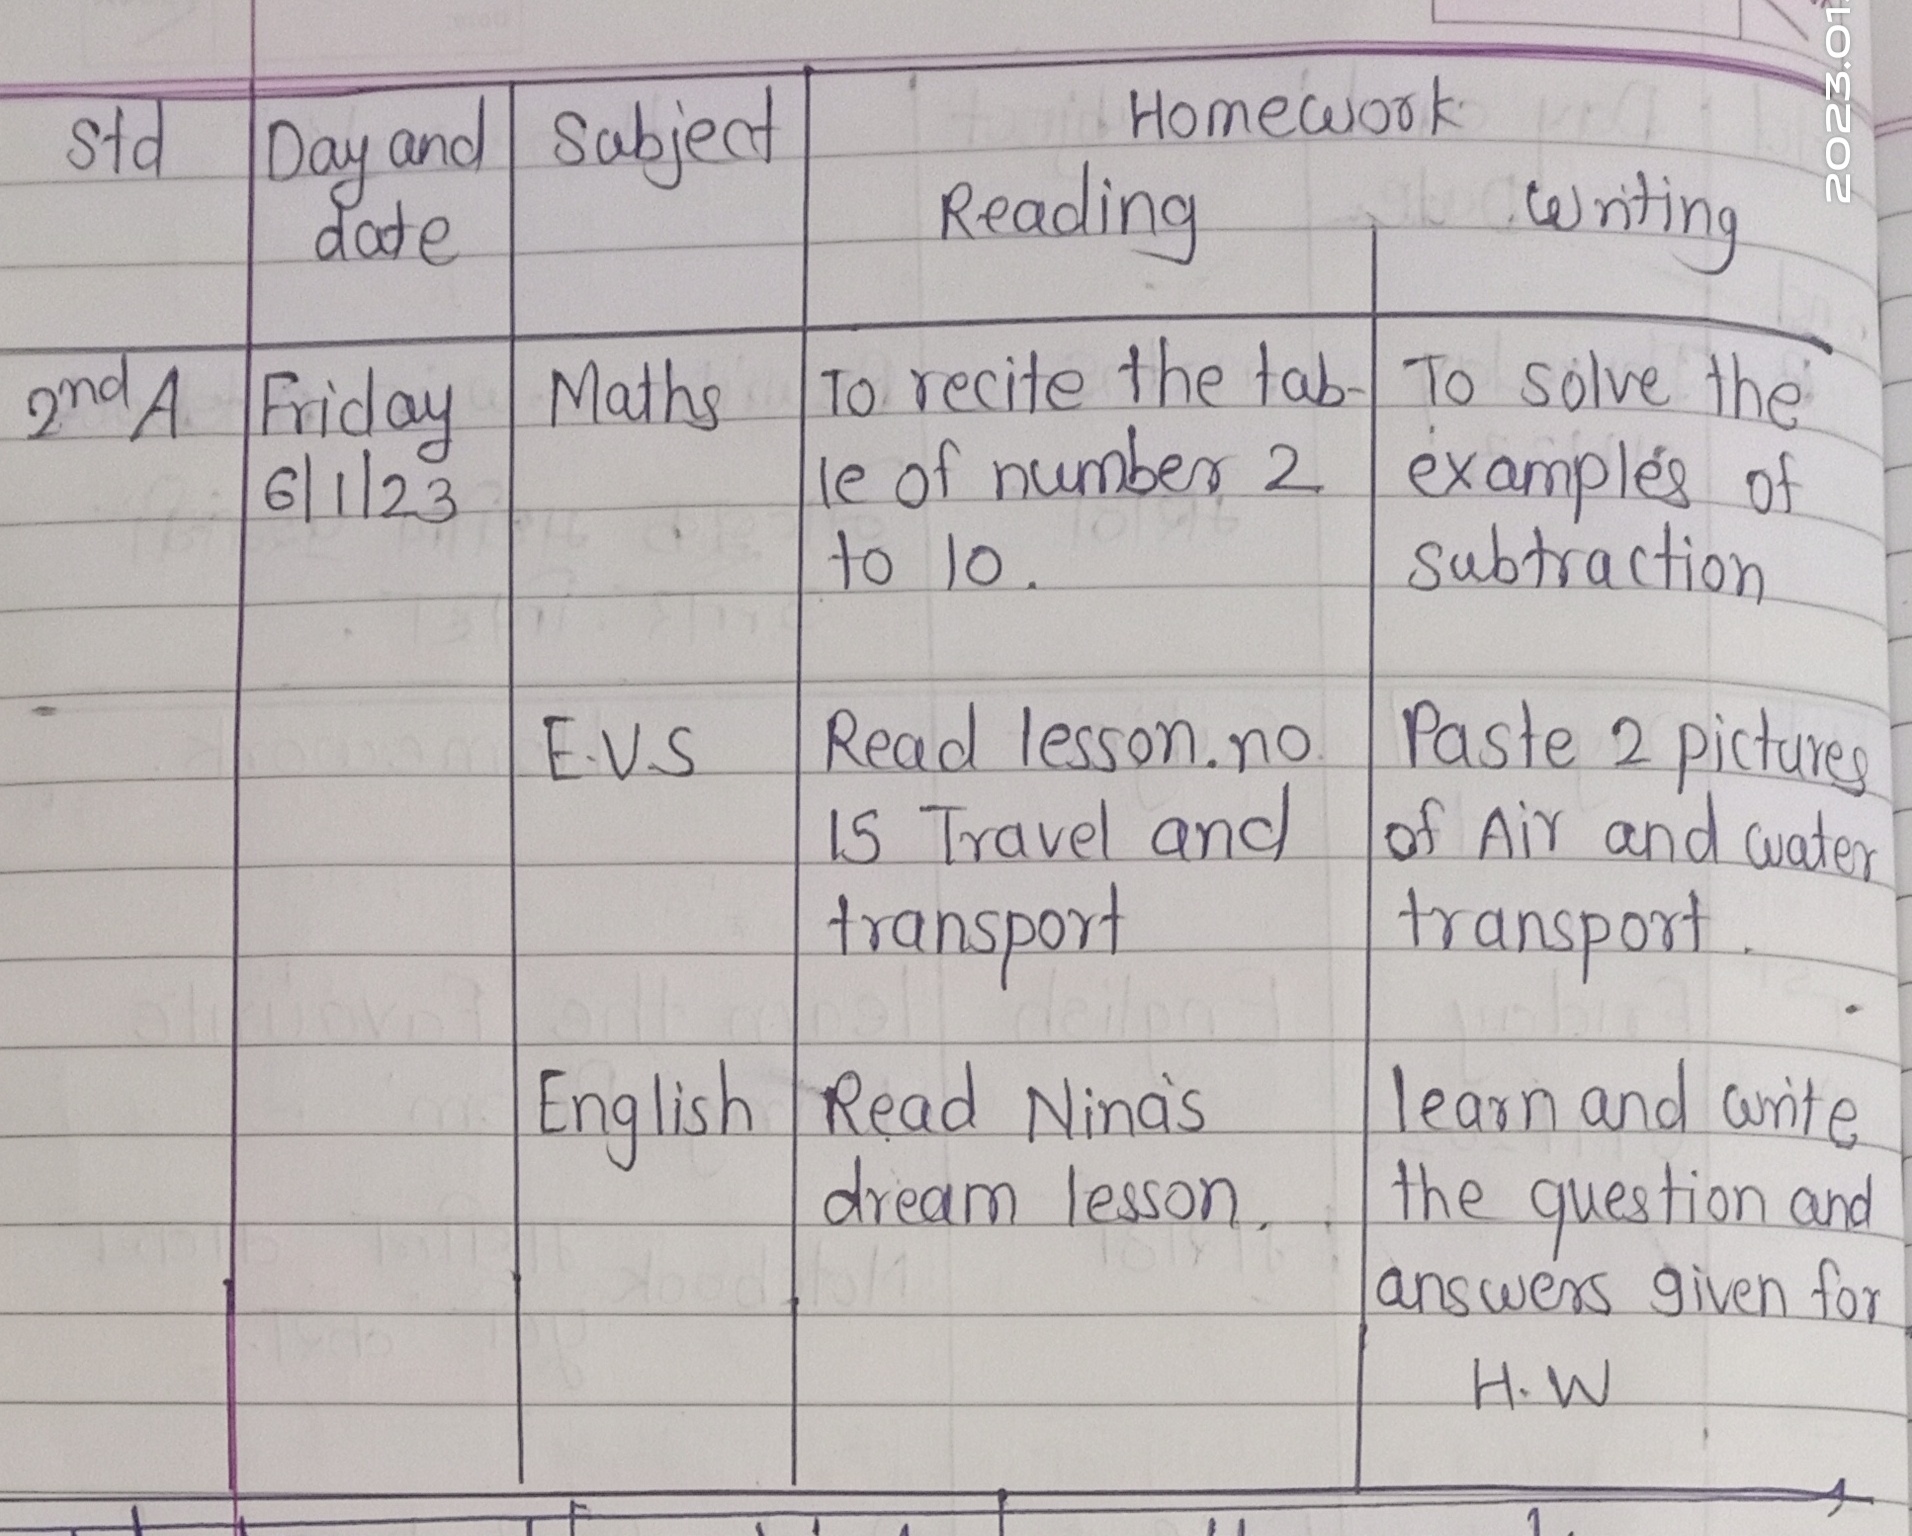 Std Day and Subject Homework
date Reading Writing
2nd A Friday Maths To recite the tab- To solve the
6/1/23 le of number 2 examples of
to 10. subtraction
E.V.S Read lesson.no Paste 2 pictures
15 Travel and of Air and water
transport transport.
English Read Nina's learn and write
dream lesson. the question and
answers given for
H.W
2023.01